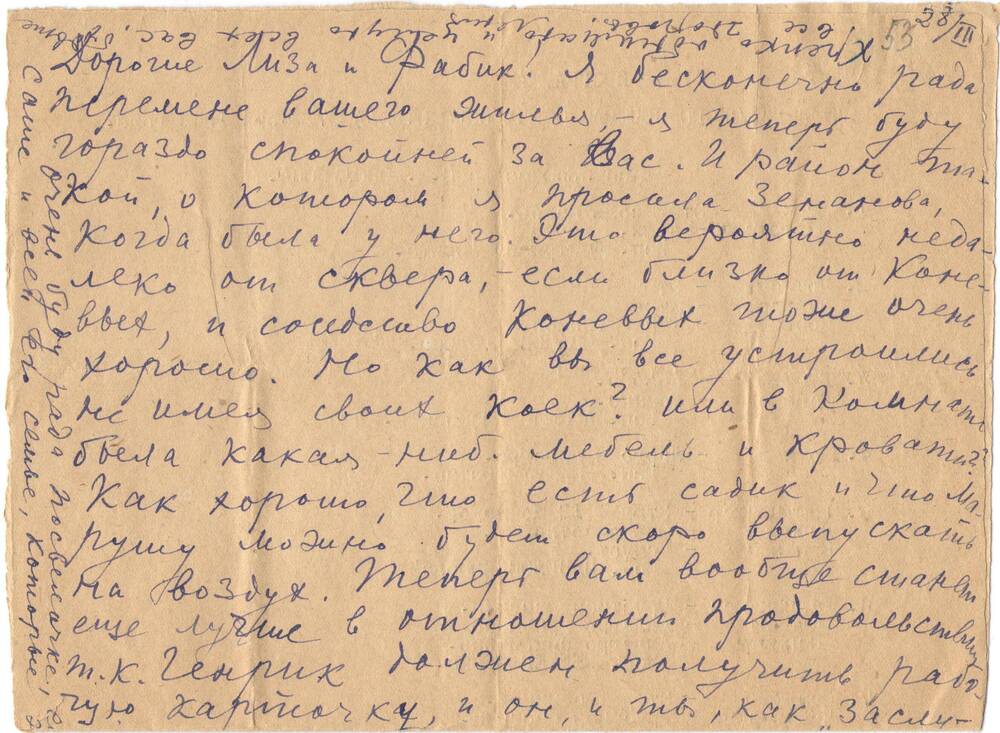 28/III
53
Дорогие Лиза и Фабик. Я бесконечно рада
перемене вашего жилья, – я теперь буду
гораздо спокойней за Вас. И район та-
кой, о котором я просила Земанова,
когда была у него. Это вероятно неда-
леко от сквера, – если близко от Коне-
вых, и соседство Коневых тоже очень
хорошо. Но как вы все устроились
не имея своих коек? или в комнате
была какая-ниб. мебель и кровати?
Как хорошо, что есть садик и что Ма-
рушу можно будет скоро выпускать
на воздух. Теперь вам вообще станет
еще лучше в отношении продовольствия
т.к. Генрик должен получить рабо-
чую карточку, и он, и ты, как „заслу-
Саше и всей его семье, которые
очень буду рада посылочке,
Крепко обнимаю и целую всех вас, будьте
все здоровы.